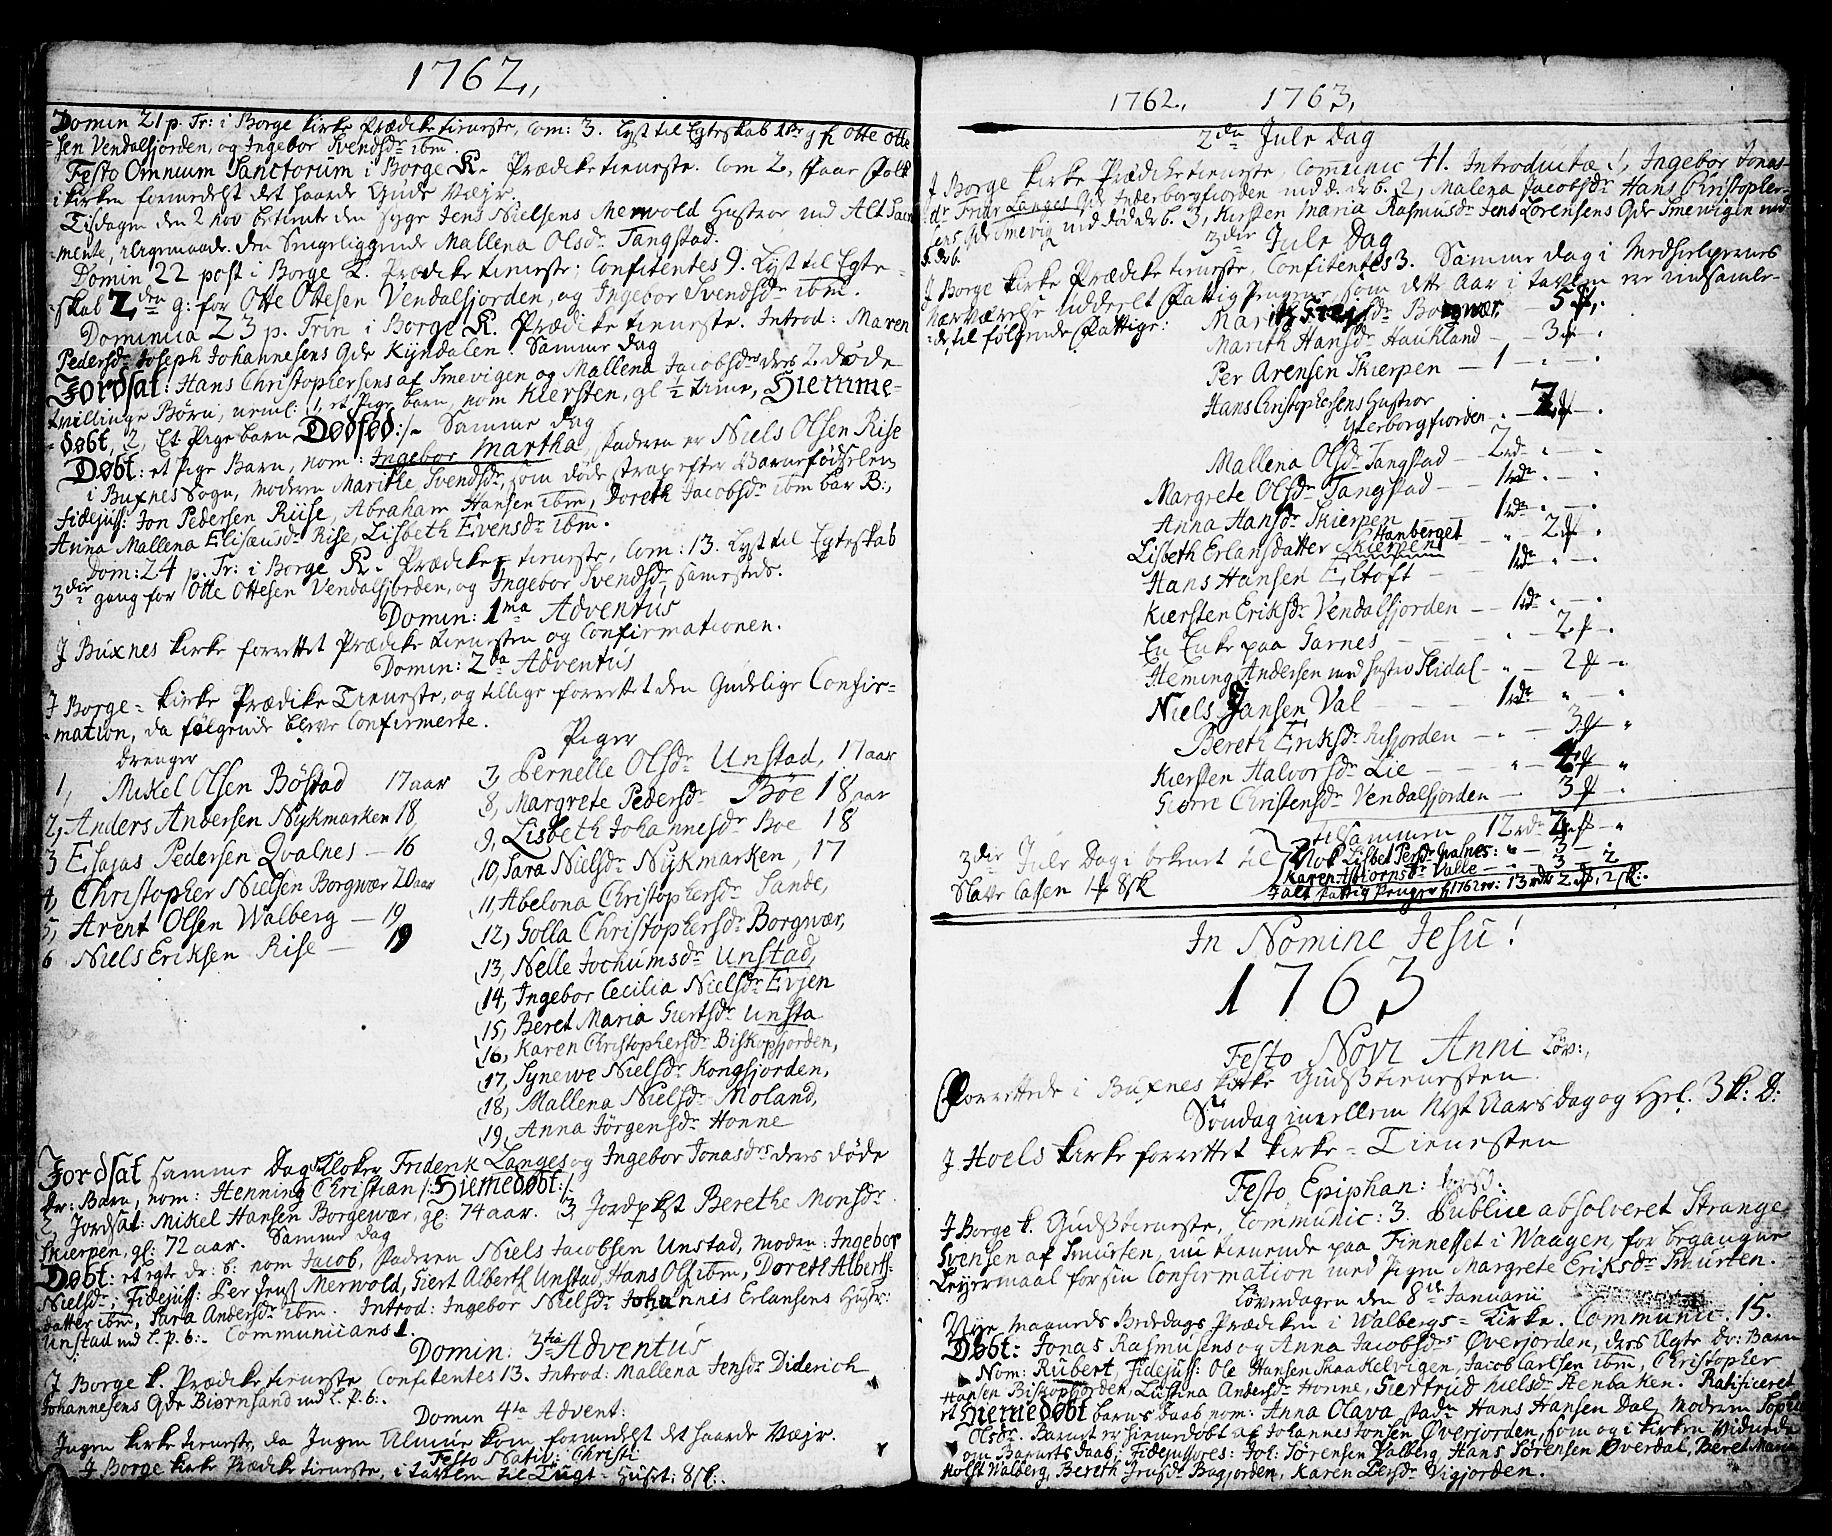 1762,,
Domin 21 p. Tr: i Borge kirke Prædiketieneste, Com: 3. Lyst til Egteskab 1ste g f. Otte Otte
=sen Vendalfjorden, og Ingebor Svendsdr ibm.
Festo Omnium Sanctorum i Borge K. Prædiketieneste. Com 2, faar Folk
i kirken formedelst det haarde Guds Vejr.
Tisdagen den 2 Nov betiente den syge Jens Nielsens Merwold Hustroe med Alt: Sacra
=mente, i ligemaade den Snigeliggende Mallena Olsdr Tangstad.
Domin 22 post i Borge K. Prædiketieneste; Confitentes 9. Lyst til Egte=
=skab 2den g: for Otte Ottesen Vendalsjorden, og Ingebor Svendsdr ibm.
Dominica 23 p. Trin i Borge K. Prædiketieneste. Introd: Maren
Pedersdr Joseph Johannesens Qde Kyndalen. Samme Dag
Jordsat: Hans Christophersens af Smevigen og Mallena Jacobsdrs ders 2 døde
tvillinge Børn, neml: 1, et Pige barn, nom Kiersten, gl ½ time, Hiemme=
=døbt, 2, Et Pige barn Dødfød:/- Samme Dag
Døbt: et Pige Barn, nom: Ingebor Martha, Faderen er Niels Olsen Rise
i Buxnes Sogn, Modern Marithe Svendsdr, som døde strax efter Barnefødselen
fidejuss: Jon Pedersen Riise, Abraham Hansen ibm, Doreth Jacobsdr ibm bar B:,
Anna Mallena Elisæusdr Rise, Lisbeth Evensdr ibm.
Dom: 24 p. Tr: i Borge K. Prædiketieneste, Com: 13. Lyst til Egteskab
3die gang for Otte Ottesen Vendalsjorden, og Ingebor Svendsdr samesteds.
Domin: 1ma Adventus
J Buxnes kirke forrettet Prædiketienesten og Confirmationen.
Domin: 2da Adventus
J Borge= kirke Prædike Tieneste, og tillige forrettet den Gudelige Confir=
=mation, da følgende bleve Confirmerte.
Drenger
1, Mikel Olsen Böstad 17 aar
2, Anders Andersen Nykmarken 18
3 Esajas Pedersen Qvalnes — 16
4, Christopher Nielsen Borgwær 20 aar
5, Arent Olsen Walberg — 19
6 Niels Eriksen Rise — 19
Piger
7, Pernelle Olsdr Unstad, 17 aar
8, Margrete Pedersdr Böe 18 aar
9, Lisbeth Johannesdr Boe 18
10, Sara Nielsdr Nykmarken, 17
11, Abelona Christophersdr Sande,
12, Golla Christophersdr Borgwær,
13, Nelle Jochumsdr Unstad,
14, Ingebor Cecilia Nielsdr Evjen
15, Beret Maria Giertsdr Unsta
16, Karen Christophersdr Biskopjorden,
17, Synewe Nielsdr Kongsjorden,
18, Mallena Nielsdr Moland,
19, Anna Jörgensdr Honne
Jordsat samme Dag Kloker Friderik Langes og Ingebor Jonasdrs ders døde
dr: Barn, nom: Henning Christian /: Hiemedøbt:/
2, Jordsat: Mikel Hansen Borgewær, gl: 74 aar. 3, Jordpkst Berethe Monsdr
Skierpen, gl: 72 aar. Samme Dag
Døbt: et egte dr: b: nom Jacob, Faderen Niels Jacobsen Unstad, Moden: Ingebor
Nielsdr; Fidejuss: Per Jenss Merwold, Giert Alberth Unstad, Hans Ols ibm, Doreth Alberts=
datter ibm, Sara Andersdr ibm. Introd: Ingebor Nielsdr Johannis Erlansens Hustr:
Unstad med l. p. b:. Communicans 1.
Domin: 3tia Adventus
J Borge k. Prædiketieneste, Confitentes 13. Introd: Mallena Jensdr Diderich
Johannesens Qde Biornsand med l. p. b:.
Domin 4ta Advent:
Ingen kirketieneste, da Ingen Almue kom formedelst det haarde Vejr.
Festo Nativ: Christi
J Borge kirke Prædiketieneste, i tavlen til Tugt=Huset: 8 sk:.
1762., 1763,
2den Jule Dag
J Borge kirke Prædiketieneste, Communic 41. Introductæ 1, Ingebor Jonas
dr Fridr Langes Qde Inderborgfjorden med d. dr b. 2, Malena Jacobsdr Hans Christopher=
=sens Qde Smevig med død dr b. 3, Kirsten Maria Rasmusdr Jens Lorensens Qde Smevigen med
d. dr b.
3die Jule Dag
J Borge kirke Prædiketieneste, Confitentes 3. Samme dag i Medhielpernes
Nærværelse uddeelt Fattig Penger, som dette Aar i tavlen er indsamle=
=de, til følgende Fattige:
Marith dr Borgwær — 5 ʄ,
Marith Hansdr Haukland — — 3 ʄ .
Per Arensen Skierpen — 1 — . — .
Hans Christophersens Hustroe
Yterborgfiorden . — 2 ʄ — .
Mallena Olsdr Tangstad — 2 rd . — .
Margrete Olsdr Tangstad — — 1 rdr . — .
Anna Hansdr Skierpen — — 1 rdr . — .
Lisbeth Erlansdatter Skierpen Hanberget — „ — 2 ʄ — .
Hans Hansen Eltoft — — 1 rdr . — .
Kiersten Eriksdr Vendalsjorden — — 1 rdr . — .
En Enke paa Garnes — — — . — 2 ʄ — .
Heming Andersen med Hustro Skidal — „ — 2 ʄ — „
Niels Jansen Val — — — 1 rdr „ — „
Bereth Eriksdr Risjorden — — „ — 3 ʄ — „
Kiersten Halvorsdr Lie — — — „ — 4 ʄ „
Giørri Christensdr Vendalsjorden — „ 3 ʄ — „
tilsammen 12 rdr 2 ʄ — „
Nok Lisbet Persdr Qvalnes: „ — 3 — :
Karen Asbiornsdr Valle — — 3 — 2
I alt Fattig Penger f 1762 er: 13 rdr 2 ʄ, 2 sk:.
3die Jule Dag i bekent til
Slave Cassen 1 ʄ 8 sk
In Nomine Jesu!
1763
Festo Novi Anni Löv:,
Forrettede i Buxnes kirke Gudstienesten.
Søndag imellem Nyt Aars dag og Hel. 3 K: D:
J Hoels kirke forrettet kirke=Tienesten
Festo Epiphan:
J Borge k. Gudstieneste, Communic: 3. Publice absolveret Strange
Svensen af Smurten, nu tienende paa Finnesset i Waagen, for begangne
Leyermaal for sin Confirmation med Pigen Margrete Eriksdr Smurten.
Löverdagen den 8de Januarii
Nye Maaneds Bededags Prædiken i Walbergs=Kirke. Communic. 15.
Døbt: Jonas Rasmusens og Anna Jacobsdrs Øverjorden, ders Ægte dr: Barn
Nom: Rubert, Fidejuss: Ole Hansen Skaakelvigen, Jacob Carlsen ibm, Christopher
Hansen Biskopfjorden, Lustina Andersdr Honne, Giertrud Nielsdr Stenbakken. Ratificeret
et Hiemedøbt barns Daab nom: Anna Olava, Fadn Hans Hansen Dal, Modrin Sophia
Olsdr. Barnet er hiemedøbt af Johannes Jonsen Øverjorden, som og i kirken vidnede
om Barnets Daab, Fidejussores: Joh: Sørensen Valberg, Hans Sørensen Øverdal, Beret Maria
Holst Walberg, Bereth Jensdr Bagjorden, Karen Persdr Vigjorden.